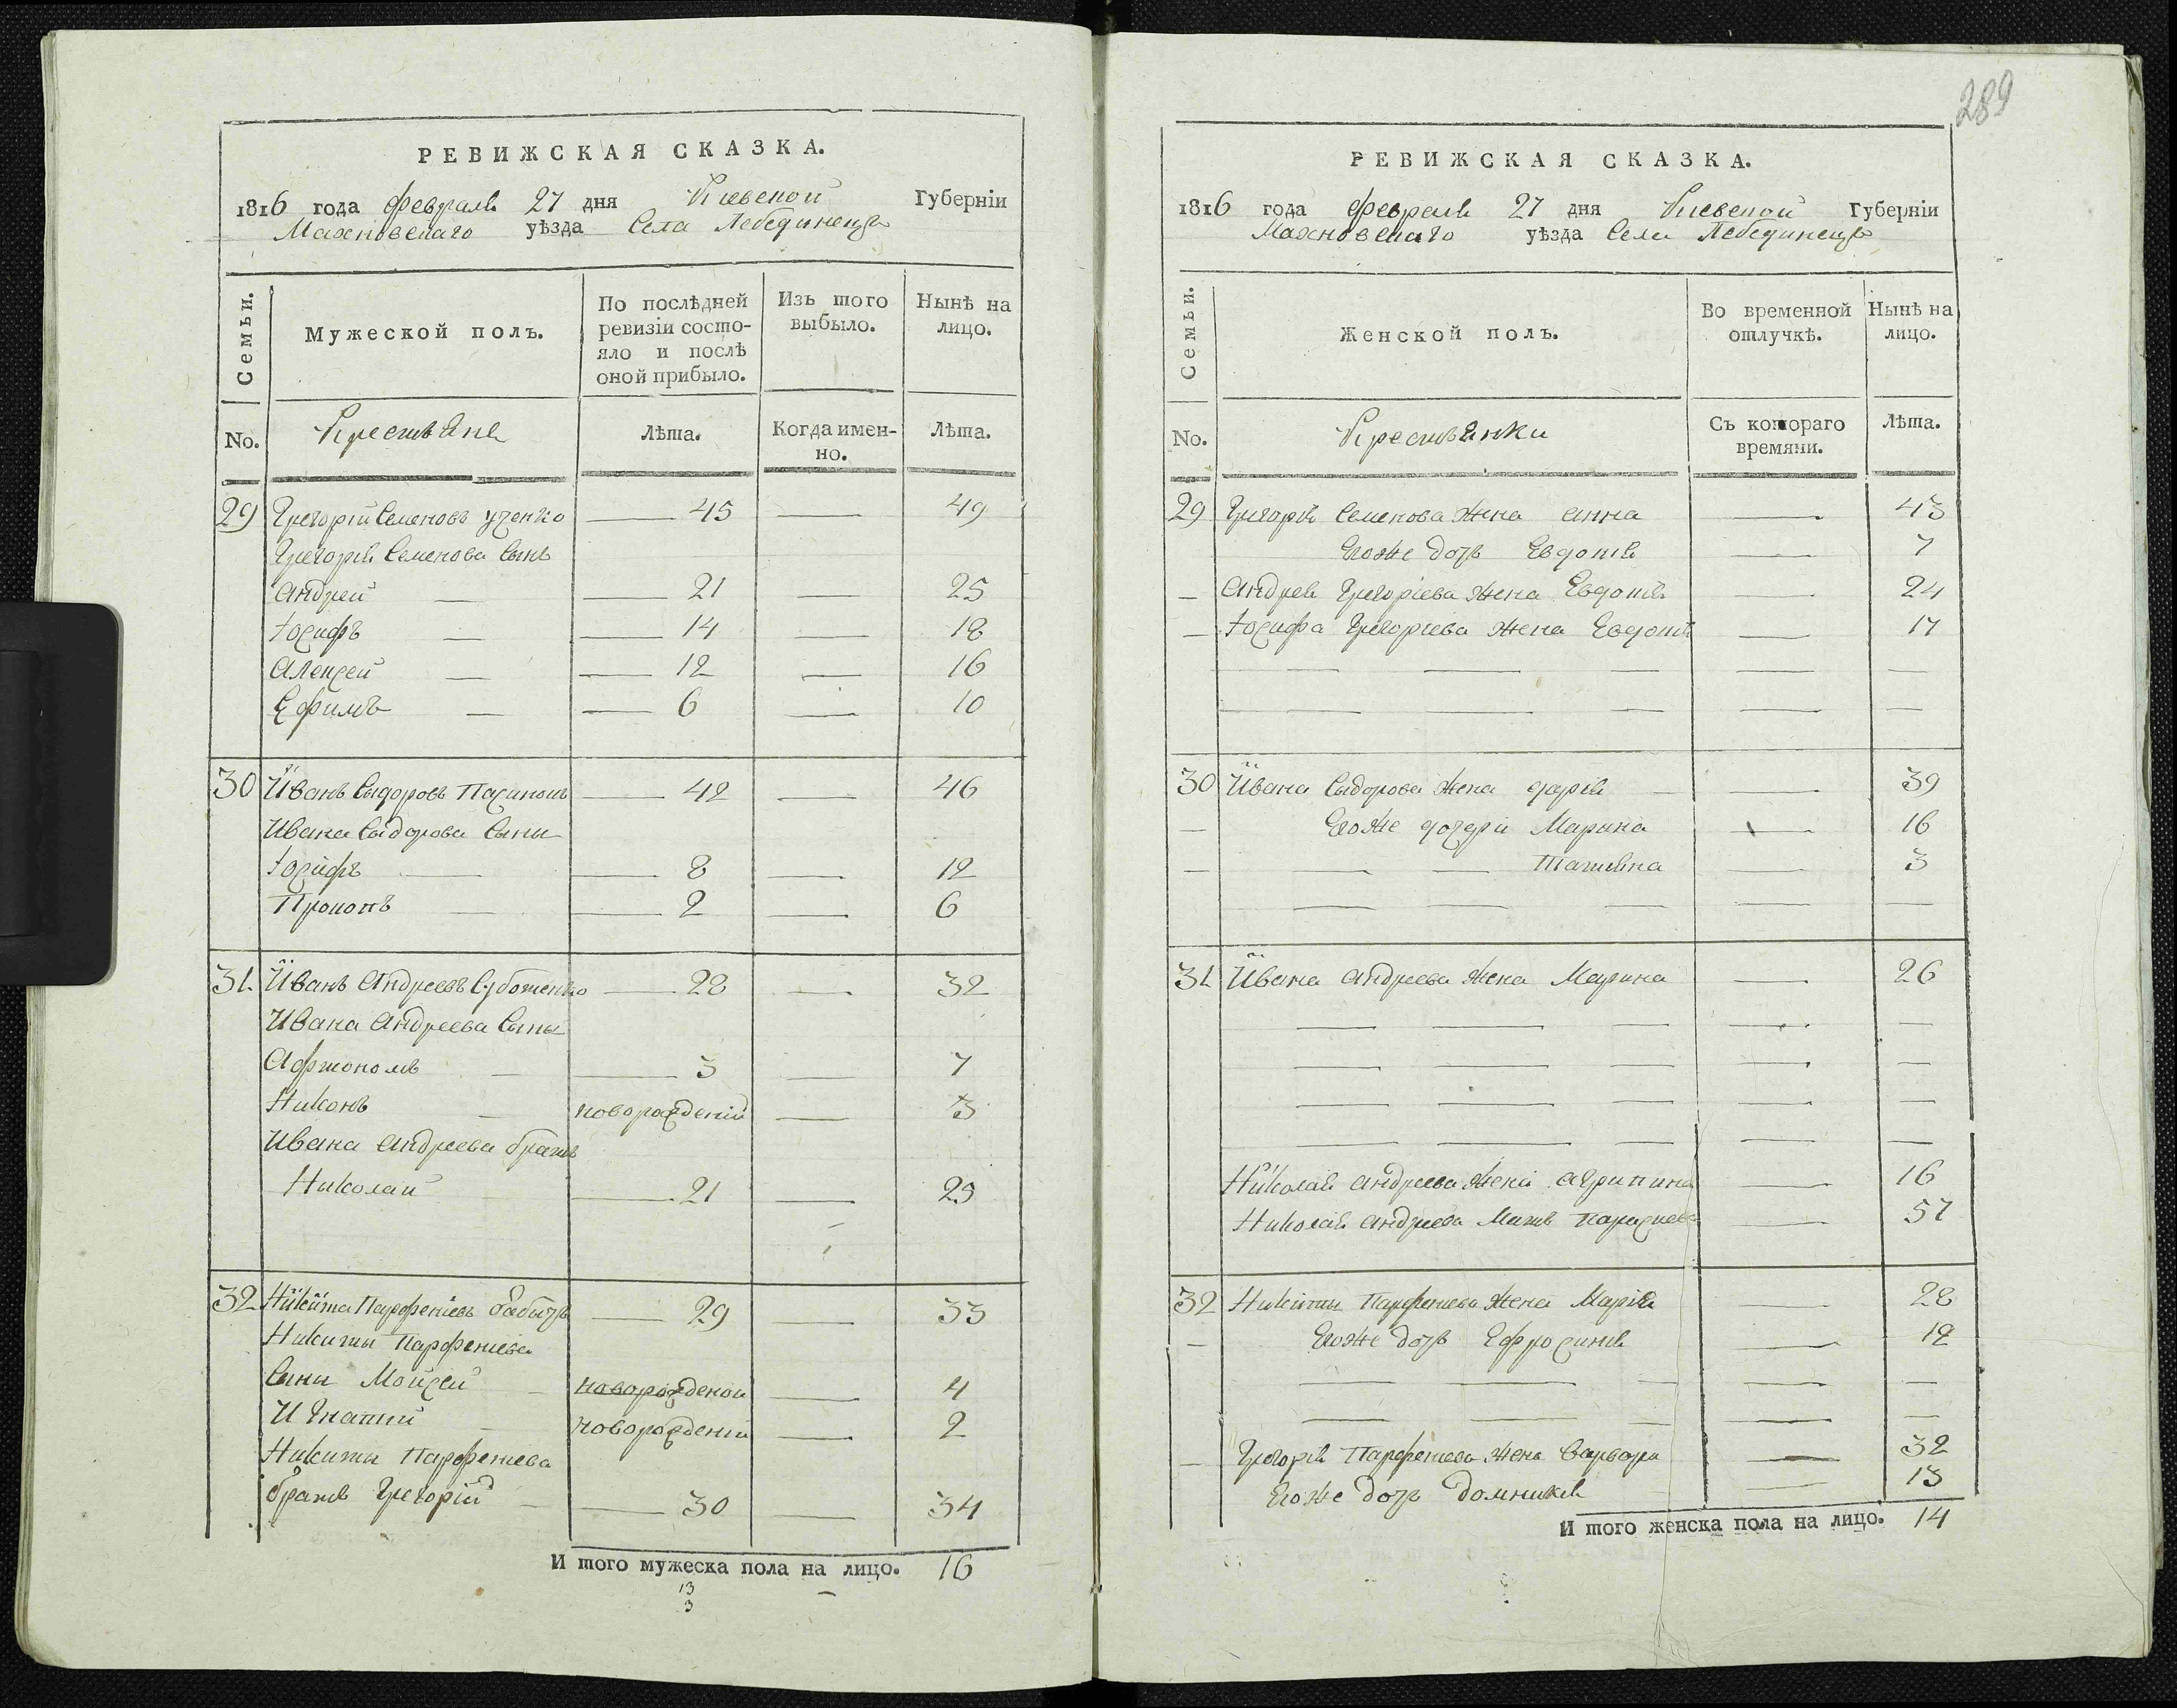 РЕВИЖСКАЯ СКАЗКА.
1816 года февраля 27 дня Киевской Губерніи
Махновскаго уѣзда Села Лебединецъ
Семьи.
Мужеской полъ.
По послѣдней ревизіи состо-
яло и послѣ
оной прибыло.
Изъ того выбыло.
Нынѣ на лицо.
No.
Крестьяне
Лѣта.
Когда имен-
но.
Лѣта.
29 Григорій Семеновъ 45 49
Григорія Семенова сынъ
Андрей 21 25
Іосифъ 14 18
Алексей 12 16
Ефимъ 6 10
30 Иванъ Сыдоровъ 42 46
Ивана Сыдорова сыны
Іосифъ 8 12
Прокопъ 2 6
31 Иванъ Андреевъ Суботенко 28 32
Ивана Андреева сыны
3 7
Никонъ новорожденій 3
Ивана Андреева братъ
Николай 21 25
32 Никита Парфеніевъ 29 33
Никиты Парфеніева
сыны Моисей новорожденой 4
Игнатій новорожденій 2
Никиты Парфеніева
братъ Григорій 30 34
И того мужеска пола на лицо. 16
13
3
289
РЕВИЖСКАЯ СКАЗКА.
1816 года февраля 27 дня Киевской Губерніи
Махновскаго уѣзда Села Лебединецъ
Семьи.
Женской полъ.
Во временной отлучкѣ.
Нынѣ на лицо.
No.
Крестьянки
Съ котораго времяни.
Лѣта.
29 Григорія Семенова жена Анна 43
Егоже дочь Евдокія 7
Андрея Григоріева жена Евдокія 24
Іосифа Григоріева жена Евдокія 17
30 Ивана Сыдорова жена Дарія 39
Егоже дочери Марина 16
Татияна 3
31 Ивана Андреева жена Марина 26
Николая Андреева жена Агрипина 16
Николая Андреева мать 57
32 Никиты Парфеніева жена Марія 28
Егоже дочь Ефросинія 12
Григорія Парфеніева жена Варвара 32
Егоже дочь Домникія 13
И того женска пола на лицо. 14